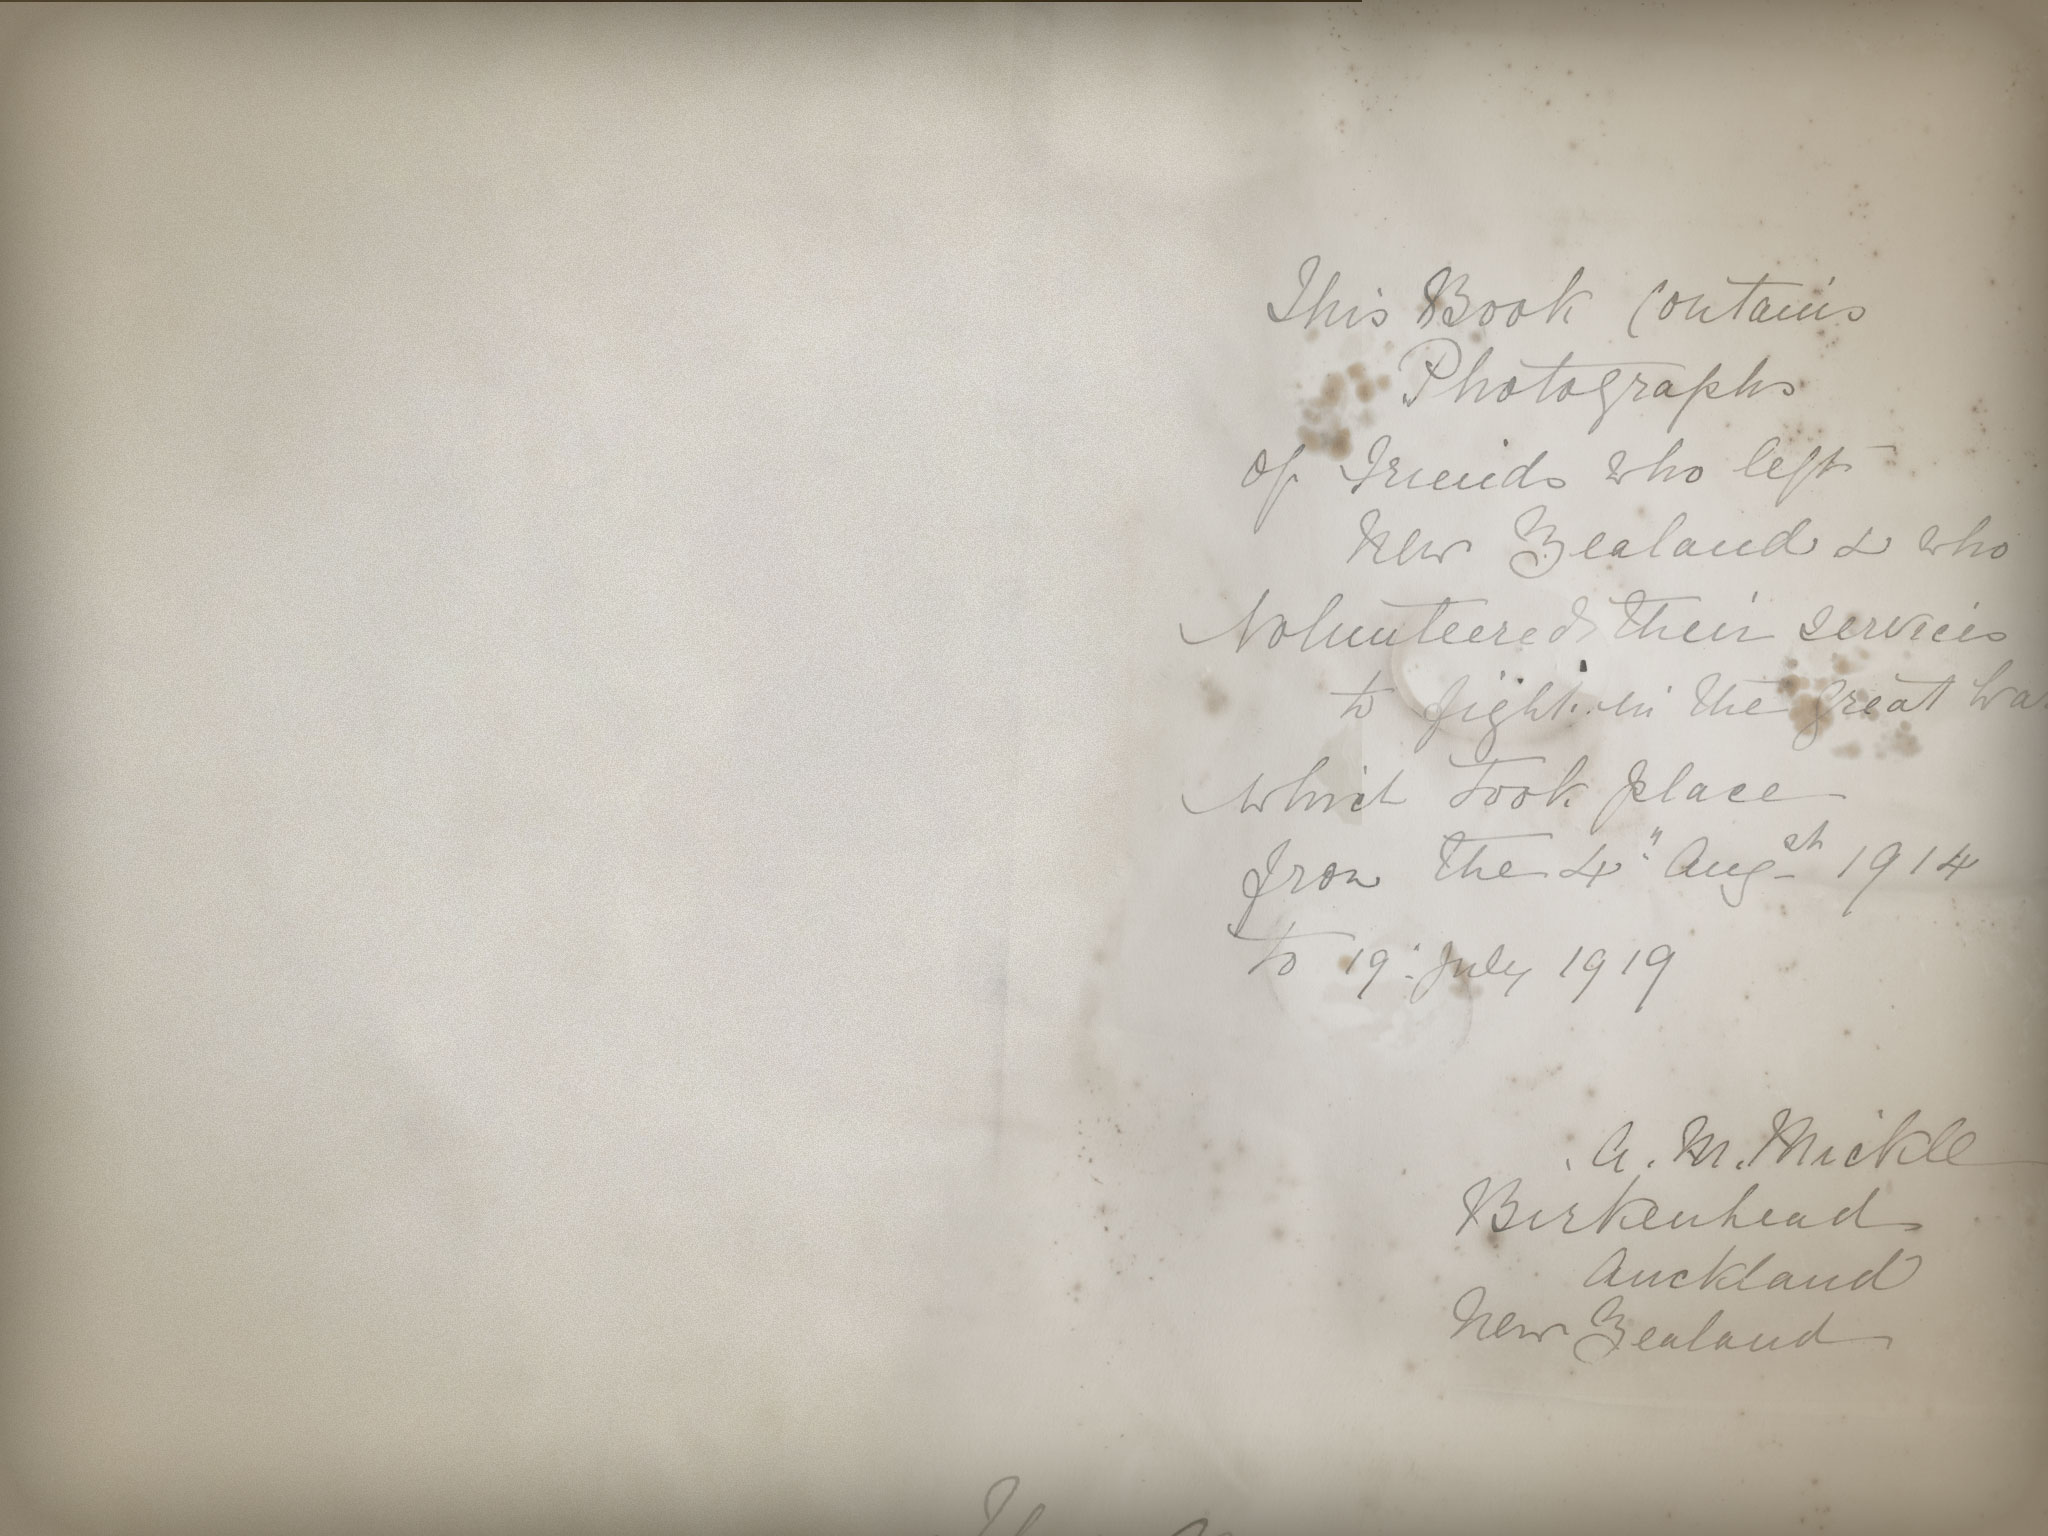 This Book Contains
Photographs
of Friends who left
New Zealand & who
Volunteered their services
to fight in the Great Wa
which took place
from the 4" Augst 1914
to 19: July 1919
A. M. Mickle
Birkenhead
Auckland
New Zealand